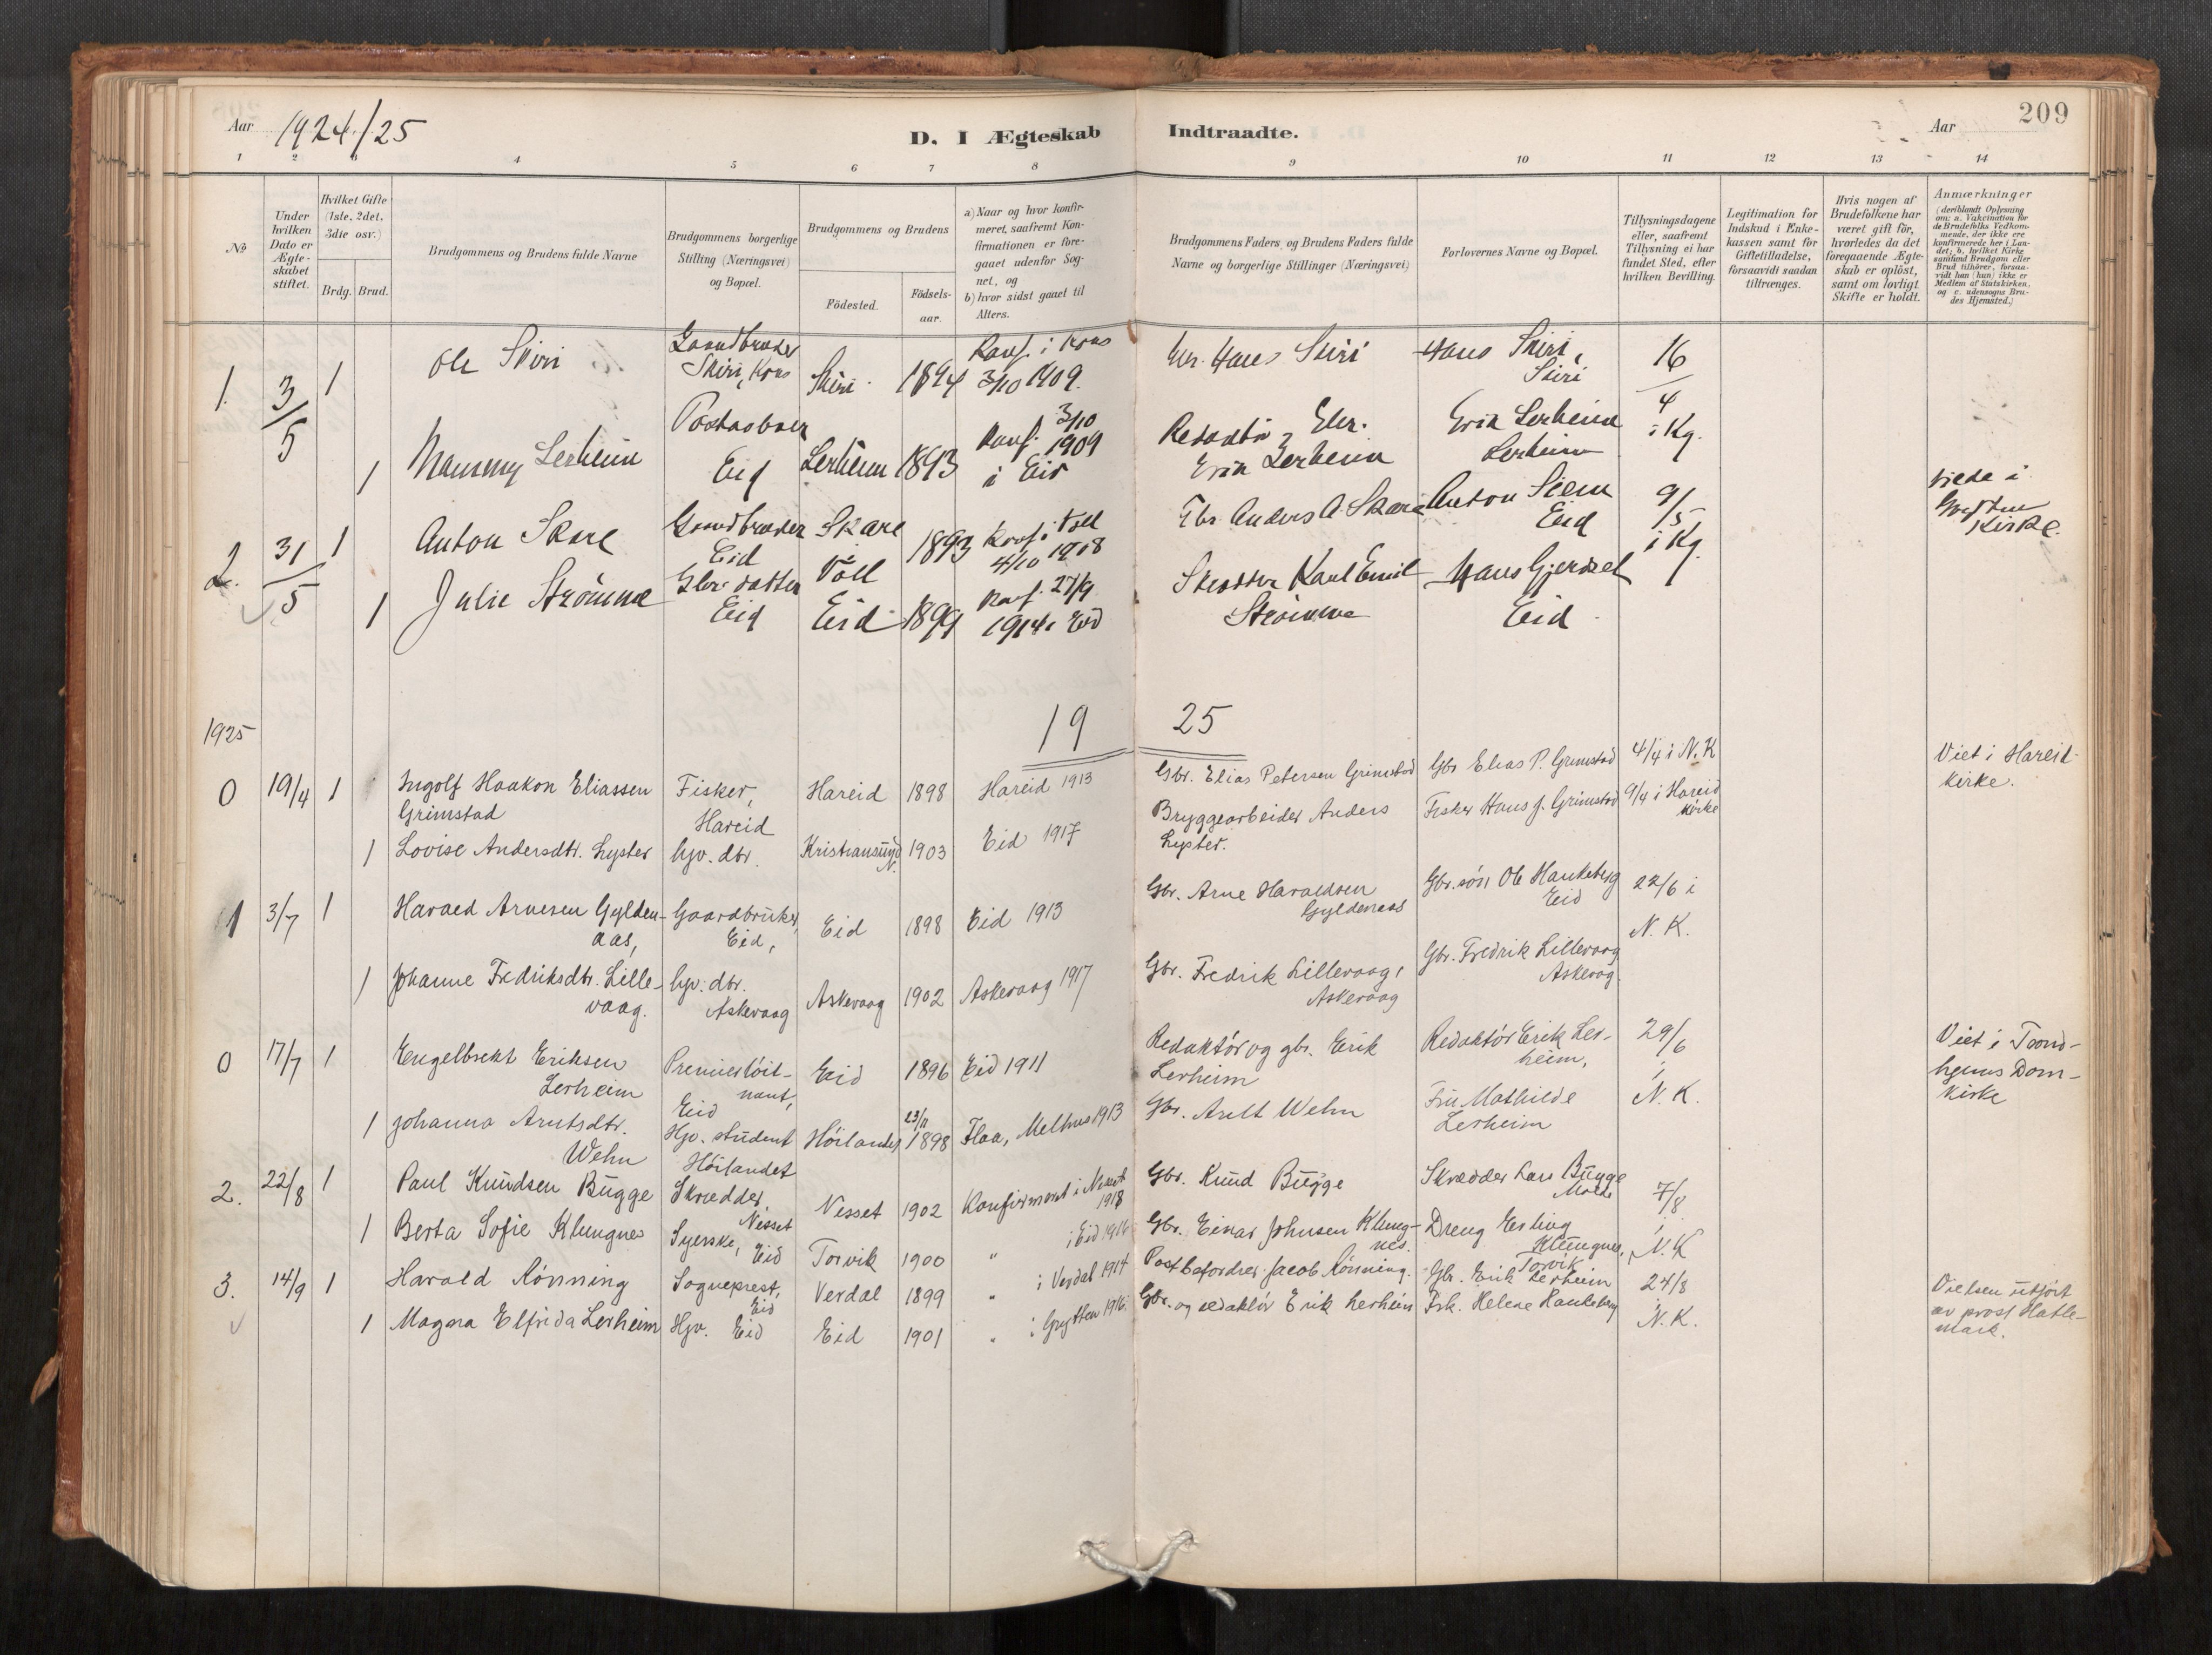 Aar 1924/25
D. I Ægteskab Indtraadte.
Aar 209
1 2 3 4 5 6 7 8 9 10 11 12 13 14
No
Under hvilken Dato er Ægteskabet stiftet.
Hvilket Gifte (1ste, 2det, 3die osv.)
Brdg. Brud.
Brudgommens og Brudens fulde Navne
Brudgommens borgerlige Stilling (Næringsvei) og Bopæl.
Brudgommens og Brudens
Födested.
Födselsaar.
a) Naar og hvor konfirmeret, saafremt Konfirmationen er foregaaet udenfor Sognet, og
b) hvor sidst gaaet til Alters.
Brudgommens Faders og Brudens Faders fulde Navne og borgerlige Stillinger (Næringsvei)
Forlovernes Navne og Bopæl.
Tillysningsdagene eller, saafremt Tillysning ei har fundet Sted, efter hvilken Bevilling.
Legitimation for Indskud i Enkekassen samt for Giftetilladelse, forsaavidt saadan tiltrænges.
Hvis nogen af Brudefolkene har været gift för, hvorledes da det foregaaende Ægteskab er oplöst, samt om lovligt Skifte er holdt.
Anmærkninger
(deriblandt Oplysning om: a. Vakcination for de Brudefolks Vedkommende, der ikke ere konfirmerede her i Landet; b. hvilket Kirkesamfund Brudgom eller Brud tilhörer, forsaavidt han (hun) ikke er Medlem af Statskirken, og c. udensogns Brudes Hjemsted.)
1. 3/5 1 Ole Skiri Gaardbruder Skiri, Kors Skiri 1894 Konf. i Kors 3/10 1909. Gbr. Hans Skiri Hans Skiri, Skiri 16/4 i Kg.
1 Lerheim Eid Lerheim 1893 Konf. 3/10 1909 i Eid Redaktör, Gbr. Erik Lerheim Erik Lerheim Lerheim
2. 31/5 1 Anton Skare Gaardbruder Eid Skare Völl 1893 Konf. i Völl 4/10 1908 Gbr. Anders A. Skare Anton Siem Eid 9/5 i Kg. viede i Grytten Kirke.
1 Julie Strömme Gbr. datter Eid Eid 1899 Konf. 27/9 1914 i Eid Skrædder Karl Emil Strömme Hans Gjerdset Eid
1925
19 25
0 19/4 1 Ingolf Haakon Eliassen Grimstad Fisker, Hareid Hareid 1898 Hareid 1913 Gbr. Elias Petersen Grimstad Gbr Elias P. Grimstad 4/4 i N. K Viet i Hareid kirke.
1 Lovise Andersdtr. Lyster hjv. dtr. Kristiansund N. 1903 Eid 1917 Bryggearbeider Anders Lyster. Fisker Hans J. Grimstad 9/4 i Hareid kirke
1 3/7 1 Harald Arnesen Gyldenaas, Gaardbruker, Eid, Eid 1898 Eid 1913 Gbr. Arne Haraldsen Gyldenaas Gbr. sön Ole Haukeberg Eid 22/6 i N. K.
1 Johanne Fredriksdtr. Lillevaag. hjv. dtr. Askevaag Askevaag 1902 Askevaag 1917 Gbr. Fredrik Lillevaag, Askevaag Gbr. Fredrik Lillevaag Askevaag.
0 17/7 1 Engelbrekt Eriksen Lerheim Premierlöitnant, Eid Eid 1896 Eid 1911 Redaktör og gbr. Erik Lerheim Redaktör Erik Lerheim, 29/6 i N. K. Viet i Trondhjems Domkirke
1 Johanna Arntsdtr. Wehn Hjv. student Hörlandet Hörlandet 23/11 1898 Flaa, Melhus 1913 Gbr. Arelt Wehn Fru Mathilde Lerheim
2. 22/8 1 Paul Knudsen Bugge Skrædder, Nesset Nesset 1902 Konfirmert i Nesset 1918 Gbr. Knud Bugge Skrædder Lars Bugge Molde 7/8 i N. K
1 Berta Sofie Klungnes Syerske, Eid Torvik 1900 " i Eid 1916 Gbr. Einar Johnsen Klungnes. Dreng Erling Klungnes, Torvik
3. 14/9 1 Harald Rönning Sogneprest, Eid Verdal 1899 " i Verdal 1914 Postbefordrer Jacob Rönning. Gbr. Erik Lerheim 24/8 i N. K. Vielsen utfört av prost Hatlemark.
1 Magna Elfrida Lerheim Hjv. Eid Eid 1901 " i Grytten 1916. Gbr. og redaktör Erik Lerheim Frk. Helene Haukeberg